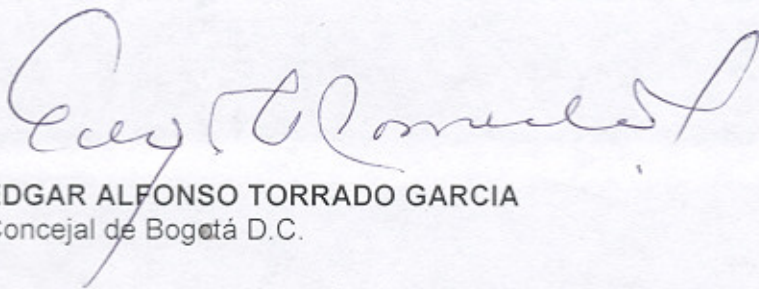 EDGAR ALFONSO TORRADO GARCIA
Concejal de Bogotá D.C.